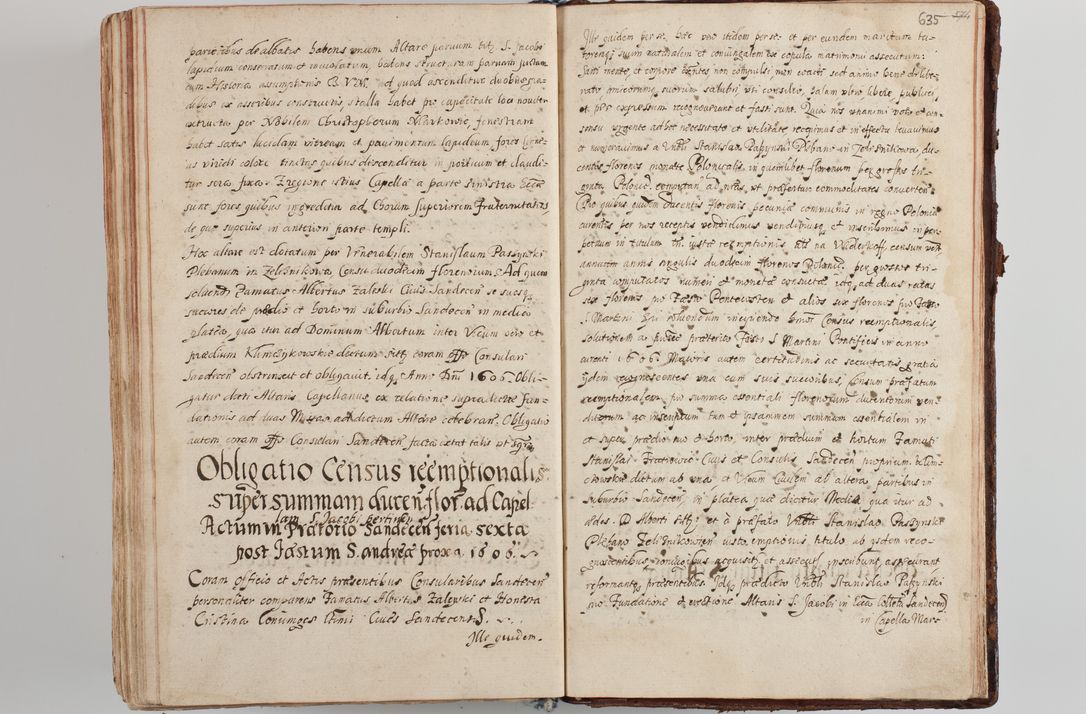 parietibus dealbatis habens unum Altare parvum tit. S. Jacobi
lapidium consecratum et inviolatum, habens structuram parvam pictam
cum Historia assumptionis B. V. M. ad quod ascenditur duobus gra-
dibus ex asseribus constructis, stalla habet pro capacitate loci noviter
extructa per Nobilem Christophorum Markowic, fenestram
habet satis lucidam vitream et pavimentum lapideum, fores ligne-
as viridi colore tinctas quibus disceditur in porticum et claudi-
tur sera fixa. E regione istius Capellæ a parte sinistra Eccæ
sunt fores quibus ingreditur ad Chorum superiorem Fraternitatis,
de quo superius in anteriori parte templi.
Hoc altare est dotatum per Vnerabilem Stanislaum Paszynski
Plebanum in Zelesnikowa Censu duodecim florenorum. Ad quem
solvend. Famatus Albertus Zaleski Civis Sandecen se sucsq.
sucæres de prædio et horto in suburbio Sandecen in media
platea, qua itur ad Dominum Albertum inter Vicum vero et
prædium Klimczykowskie dictum sitis coram offo Consulari
Sandecen obstrinxit et obligavit. idq. Anno Dni 1606. Obli-
gatur dicti Altaris Capellanus ex relatione supra dictæ Fun-
dationis ad duas Missas ad dictum Altare celebran. Obligatio
autem coram offo Consulari Sandecen facta extat talis ut seqr.
Obligatio Census reemptionalis
super summam ducen. flor. ad Capel-
lam S. Jacobi pertinen
Actum in Prætorio Sandecen feria sexta
post Festum S. Andreæ proxa 1606.
Coram officio et Actis præsentibus Consularibus Sandecen
personaliter comparens Famatus Albertus Zalewski et Honesta
Cristina Coniunges ltimi Cives Sandecens.
Ille quidem.
635
Ille quidem per se, hæc vero itidem per se, et per eundem maritum tu-
torenqz suum naturalem et coniugalem ex copula matrimonii assecutum:
Sani mente, et corpore exntes non compulsi, non coacti sed animo bene delibe-
rato amicorumq suorum salubri uti consilio, palam ultro, libere, publice,
et per expressum recognoverunt et fassi sunt. Quia nos unanimi voto et con-
sensu urgente ad hoc necessitate et utilitate recepimus et in effectu levavimus
et numeravimus a Vnbli Stanislao Papynski Plbano in Zelesnikowa, du-
centos florenos monetæ Polonicalis, in quemlibet florenum per grossos tri-
ginta Polonic. computan. ad nras, ut præfertur commoditates converten.
Pro quibus quidem ducentis florenis pecuniæ communis in regno Poloniæ
currentis per nos receptis vendidimus vendimusq, et inscribimus in per-
petuum in titulum tn. iustæ reemptionis als na Widerkoff, censum vel
annuum annis singulis duodecim florenos Polonic. per grossos tri-
ginta computatos numeri et monetæ consuetæ idq ad duas ratas
sex florenis pro Festo Pentecosten et alios sex florenos pro Festo
S. Martini Epi solvendum incipiendo hmoi Census reemptionalis
solutionem a nunc præterito Festo S. Martini Pontificis in anno
currenti 1606. Maioris autem certitudinis ac securitatis gratia
ijdem recognoscentes una cum suis sucæribus, Censum præfatum
reemptionalem pro summa essentiali florenorum ducentorum ven-
ditorum ac inscriptum tum et ipsammem summam essentialem in
et super prædio suo et horto, inter prædium et hortum Famati
Stanislai Frątowic Civis et Consulis Sandecen proprium. Klim-
czowskie dictum ab una, et Vicum Civilem ab altera partibus in
Suburbio Sandecen, in platea quæ dicitur Media qua itur ad
ædes D. Alberti sitis, et a præfato Vnbli Stanislao Paszynski
Plebano Zelesnikowsien iusto emptionis titulo ab ysdem reco-
gnoscentibus coniugibus acquisiti, et assecuti inscribunt, assecurant
reformantq præsentibus. Idq prædicto Vnbli Stanislao Papynski
pro Fundatione et erectione Altaris S. Jacobi in Ecca Colleta Sandecen
in Capella Mare